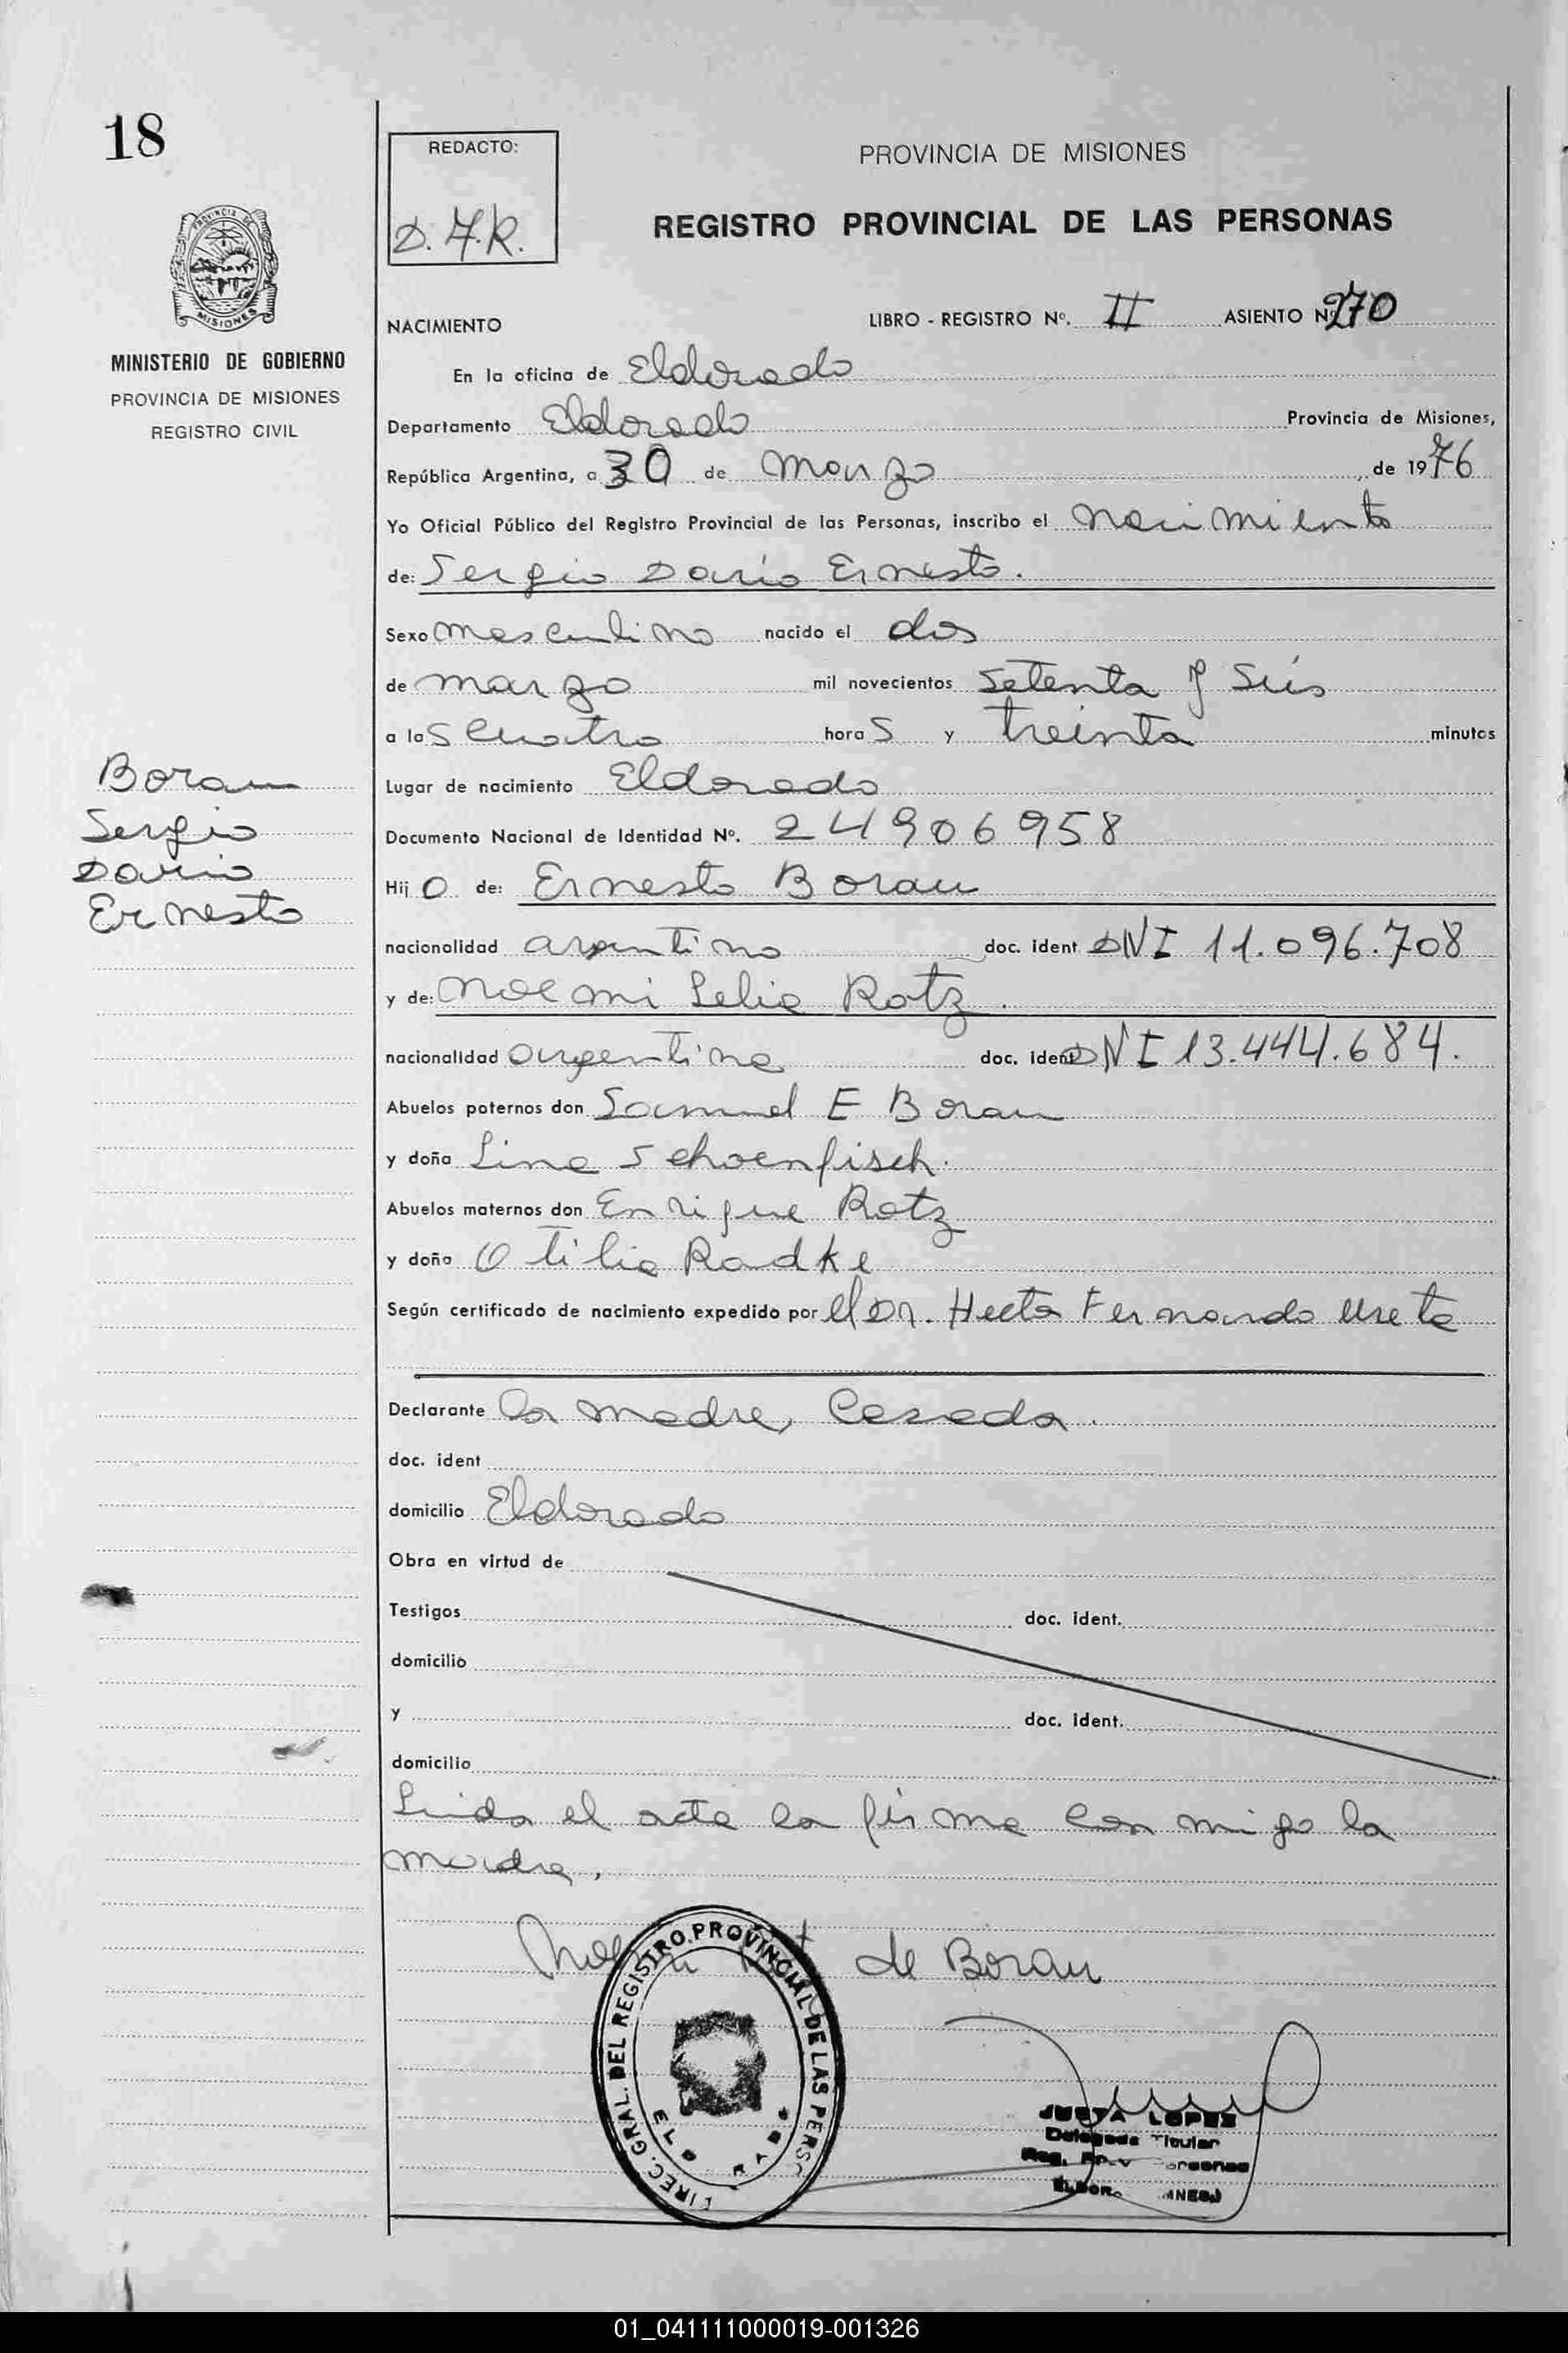 18
REDACTO:
D.F.R.
PROVINCIA DE MISIONES
REGISTRO PROVINCIAL DE LAS PERSONAS
PROVINCIA DE
MISIONES
MINISTERIO DE GOBIERNO
PROVINCIA DE MISIONES
REGISTRO CIVIL
NACIMIENTO LIBRO - REGISTRO Nº. II ASIENTO Nº 270
En la oficina de Eldorado
Departamento Eldorado Provincia de Misiones,
República Argentina, a 30 de marzo de 1976
Yo Oficial Público del Registro Provincial de las Personas, inscribo el nacimiento
de: Sergio Dario Ernesto.
Sexo masculino nacido el dos
de marzo mil novecientos setenta y seis
a las cuatro horas y treinta minutos
Lugar de nacimiento Eldorado
Documento Nacional de Identidad Nº. 24906958
Hijo de: Ernesto Borau
nacionalidad argentino doc. ident DNI 11.096.708
y de: Noemi Lelia Rotz.
nacionalidad argentina doc. ident DNI 13.444.684.
Abuelos paternos don Samuel E Borau
y doña Lina Schoenfisch.
Abuelos maternos don Enrique Rotz
y doña Otilia Radke
Según certificado de nacimiento expedido por el Dr. Hector Fernando
Declarante la madre, casada.
doc. ident
domicilio Eldorado
Obra en virtud de
Testigos doc. ident.
domicilio
y doc. ident.
domicilio
Leida el acta la firma conmigo la
madre.
Borau
Sergio
Dario
Ernesto
Noemi de Borau
DIREC. GRAL. DEL REGISTRO PROVINCIAL DE LAS PERSO
JUSTA LOPEZ
Delegada Titular
01_041111000019-001326